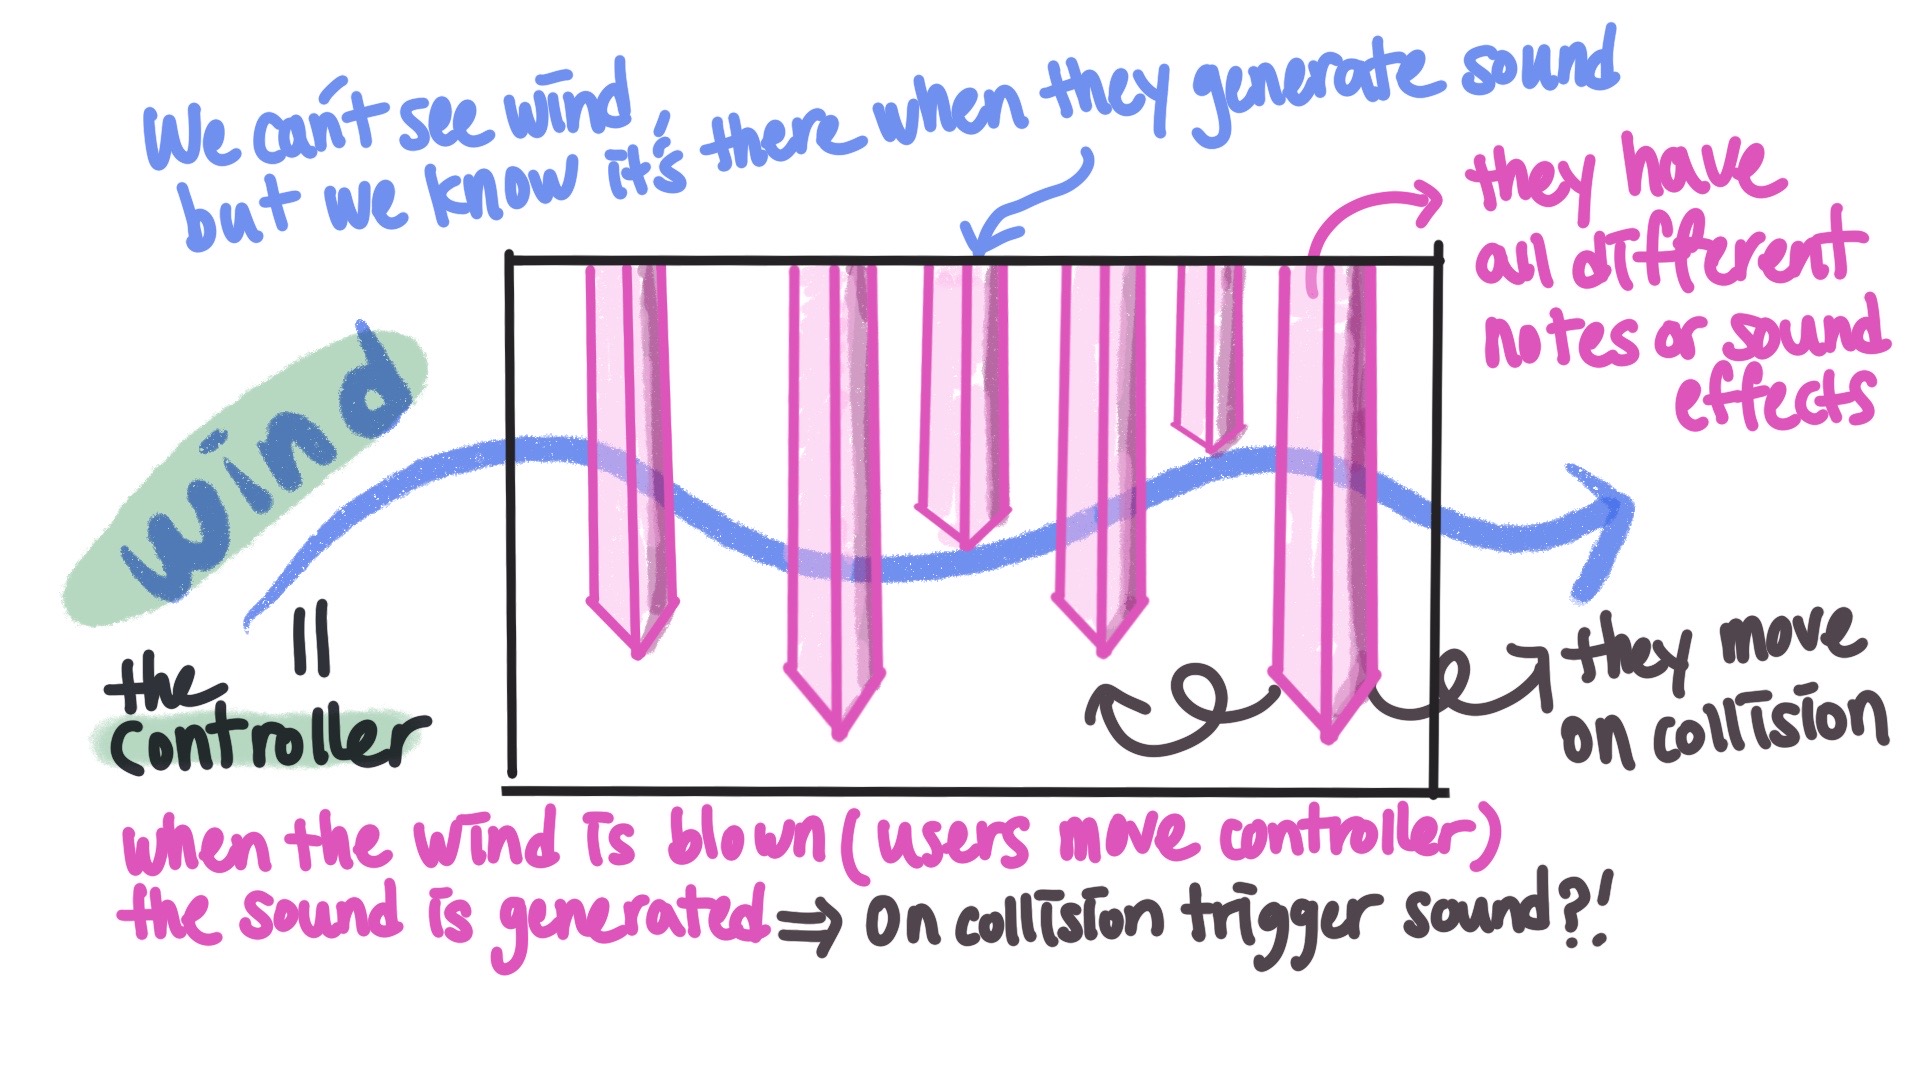 We can't see wind,
but we know it's there when they generate sound
they have
all different
notes or sound
effects
wind
=
the
controller
they move
on collision
when the wind is blown (users move controller)
the sound is generated ⇒ On collision trigger sound?!